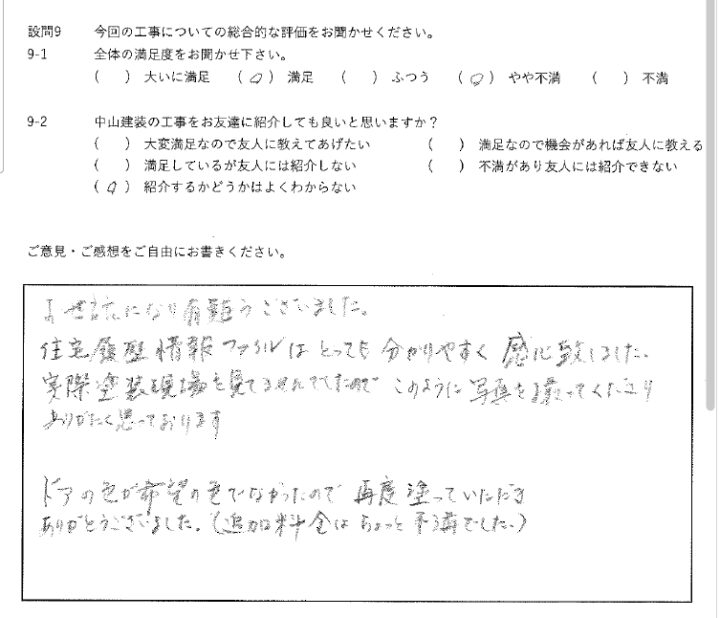 設問9 今回の工事についての総合的な評価をお聞かせください。
9-1 全体の満足度をお聞かせ下さい。
( ) 大いに満足 (○) 満足 ( ) ふつう (○) やや不満 ( ) 不満
9-2 中山建装の工事をお友達に紹介しても良いと思いますか？
( ) 大変満足なので友人に教えてあげたい ( ) 満足なので機会があれば友人に教える
( ) 満足しているが友人には紹介しない ( ) 不満があり友人には紹介できない
(○) 紹介するかどうかはよくわからない
ご意見・ご感想をご自由にお書きください。
お世話になり有難うございました。
住宅履歴情報ファイルはとっても分かりやすく感心致しました。
実際塗装現場を見てませんでしたので このように写真を撮ってくださり
ありがたく思っております
ドアの色が希望の色でなかったので 再度塗っていただき
ありがとうございました。(追加料金はちょっと不満でした。)